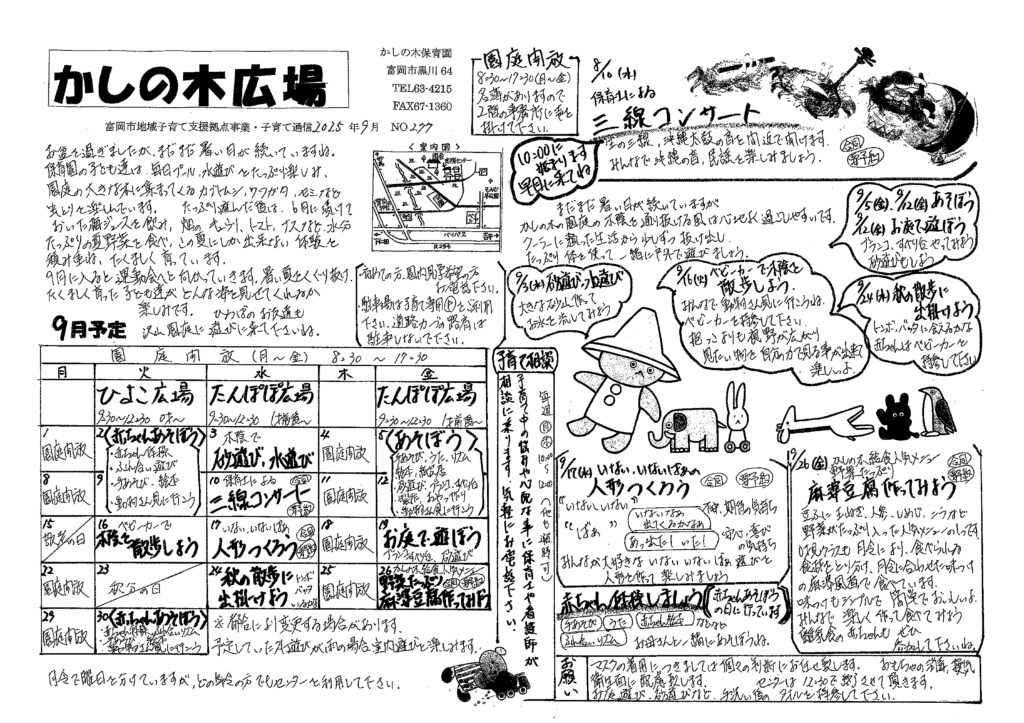 かしの木広場
かしの木保育園
富岡市黒川64
TEL63-4215
FAX67-1360
富岡市地域子育て支援拠点事業・子育て通信2025年9月 NO277
お盆も過ぎましたが、まだまだ暑い日が続いていますね。
保育園の子ども達は毎日プール、水遊びをたっぷり楽しみ、
園庭の大きな木に集まってくるカブトムシ、クワガタ、セミなど
虫とりを楽しんでいます。 たっぷり遊んだ後は、6月に漬けて
おいた梅ジュースを飲み、畑のキュウリ、トマト、ナスなど水分
たっぷりの夏野菜を食べ、この夏にしか出来ない体験を
積み重ね、たくましく育っています。
9月に入ると運動会へと向かっていきます。暑い夏をくぐり抜け、
たくましく育った子ども達がどんな姿を見せてくれるか
楽しみです。
沢山園庭に遊びに来て下さいね。
〈案内図〉
バイパス
R254
お電話下さい。
駐車場は子育て専用Ⓟをご利用
下さい。道路カーブの路肩は
駐車しないで下さい。
園庭開放
8:30〜17:30(月〜金)
名簿がありますので
2階の事務所に声を
掛けて下さい。
9/10(水)
保育士による
三線コンサート
生の三線、沖縄太鼓の音を間近で聞けます。
みんなで沖縄の音、民族を楽しみましょう。
10:00に
始まります
早目に来てね
まだまだ暑い日が続いていますが
かしの木の園庭の木陰を通り抜ける風は心地よく過ごしやすいです。
クーラーに頼った生活から少しずつ抜け出し、
たっぷり体を使って一緒に外で遊びましょう。
9/5(金)、9/12(金)あそぼう
9/19(金)お庭で遊ぼう
ブランコ、すべり台やってみよう
砂遊びもしよう
9/3(水)砂遊び、水遊び
大きなお山作って
お水を流してみよう
9/16(火)ベビーカーで木陰を
散歩しよう
みんなで動物さん見に行こうね。
ベビーカーを持参して下さい。
抱っこよりも視野が広がり
見たい物を自分の力で見る事が出来て
楽しいよ
9/24(水)秋の散歩に
出掛けよう
トンボ、バッタに会えるかな
赤ちゃんはベビーカーを
持参して下さい
9月予定
園庭開放(月〜金) 8:30〜17:30
月 火 水 木 金
ひよこ広場 たんぽぽ広場 たんぽぽ広場
9:30〜12:30 0才〜 9:30〜12:30 1才前後〜 9:30〜12:30 1才前後〜
1 園庭開放
2 赤ちゃんあそぼう
・赤ちゃん体操
・ふれ合い遊び
・絵本
・動物さん見に行こう
3 木陰で
砂遊び、水遊び
4 園庭開放
5 あそぼう
8 園庭開放
9
10 保育士による 会同 要予約
三線コンサート
11 園庭開放
12
15 敬老の日
16 ベビーカーで
木陰を散歩しよう
17 いないいないばぁ
人形つくろう
18 園庭開放
19
お庭で遊ぼう
ブランコ、すべり台、砂遊び
22 園庭開放
23 秋分の日
24 秋の散歩に
出掛けよう
トンボ
バッタ
いるかな
25 園庭開放
26 かしの木給食人気メニュー
野菜たっぷり
麻婆豆腐作ってみよう
29 園庭開放
30 赤ちゃんあそぼう
※都合により変更する場合があります。
予定していた外遊びが雨の場合、室内遊びを楽しみます。
月令で曜日を分けていますが、どの年令の方でもセンターを利用して下さい。
子育て相談
毎週月・木 10:00〜12:00(他も随時可)
子育て中の悩みや心配な事に保育士や看護師が
相談に乗ります。気軽にお電話下さい。
9/17(水)いない、いないばぁの
人形つくろう
“いない、いない”
いないなぁ
出てくるかなぁ
“ばぁ”
あっ出た!いた!
安心、喜び
の気持ち
みんなが大好きないないいないばぁ遊びを
人形を作って楽しみましょう
赤ちゃん体操しましょう
赤ちゃんあそぼう
の日に行っています
手あそび うた 赤ちゃん体操 などなど
ふれ合い リズム
お母さんと一緒にあそぼうね。
9/26(金)かしの木給食人気メニュー
野菜たっぷり
麻婆豆腐作ってみよう
豆ふに玉ねぎ、人参、しめじ、ニラなど
野菜がたっぷり入った人気メニューの1つです
0歳のうちは月令により、食べられる
食材をとり分け、月令に合わせた味つけ
の麻婆風煮で食べています。
味つけもシンプルで簡単でおいしいよ。
みんなで楽しく作って食べてみよう
離乳食の赤ちゃんもぜひ
参加して下さいね。
お願い
マスクの着用につきましては個々の判断にお任せ致します。 おもちゃの消毒、換気
衛生面に配慮致します。 センターは12:30で終了させて頂きます。
お庭遊び、砂遊びなど、手洗い後のタオルを持参して下さい。